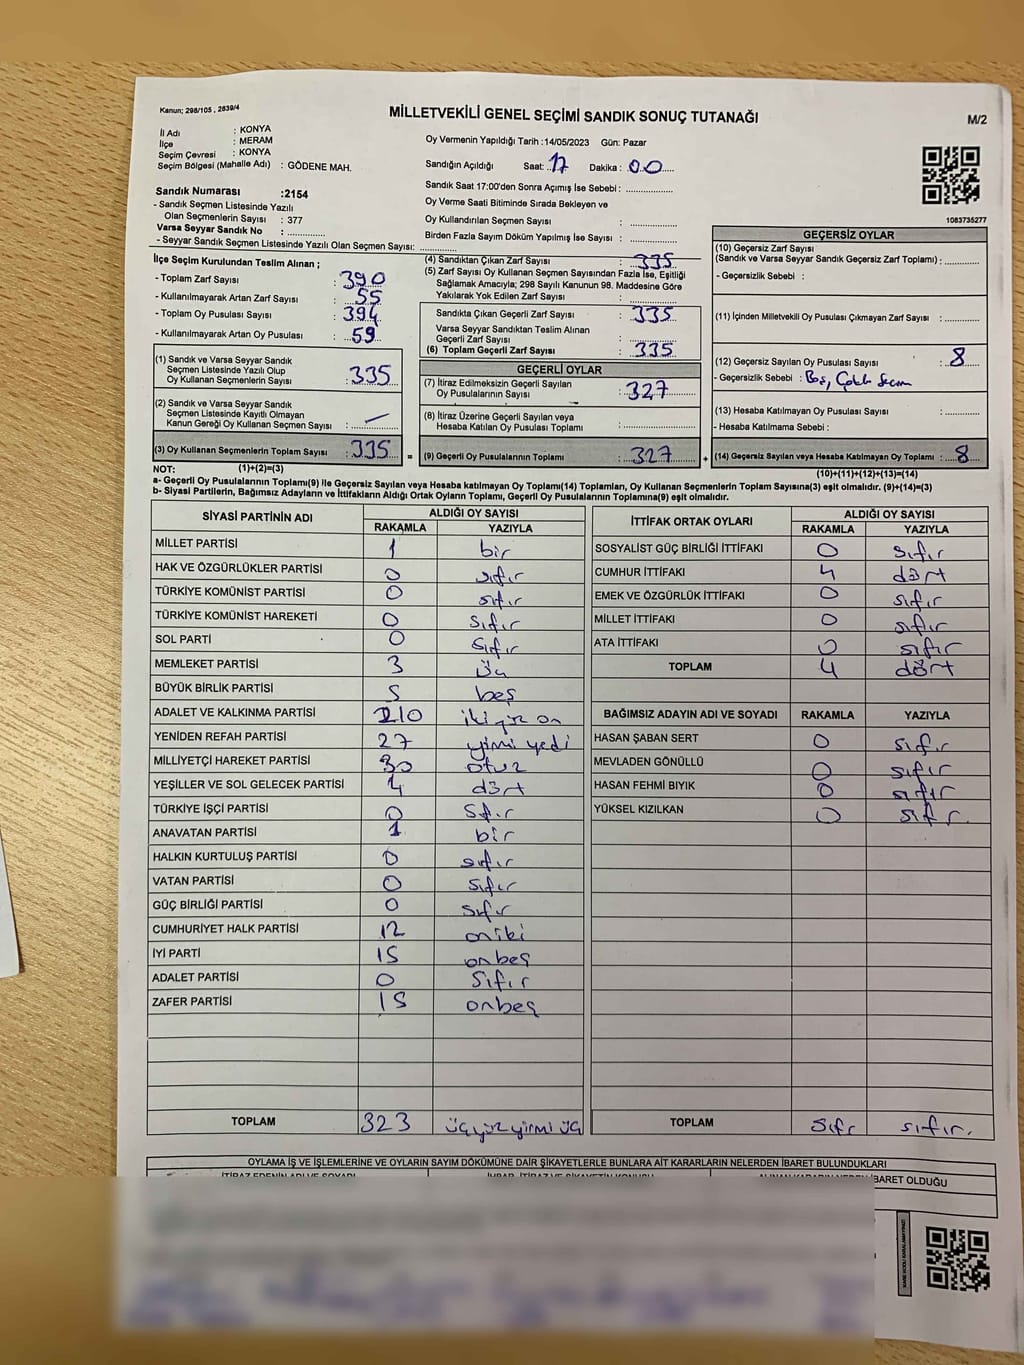 Kanun; 298/105 , 2839/4
MİLLETVEKİLİ GENEL SEÇİMİ SANDIK SONUÇ TUTANAĞI
M/2
İl Adı : KONYA
İlçe : MERAM
Seçim Çevresi : KONYA
Seçim Bölgesi (Mahalle Adı) : GÖDENE MAH.
Sandık Numarası :2154
- Sandık Seçmen Listesinde Yazılı
Olan Seçmenlerin Sayısı : 377
Varsa Seyyar Sandık No :
- Seyyar Sandık Seçmen Listesinde Yazılı Olan Seçmen Sayısı:
Oy Vermenin Yapıldığı Tarih :14/05/2023 Gün: Pazar
Sandığın Açıldığı Saat: 17 Dakika: 00
Sandık Saat 17:00'den Sonra Açımış İse Sebebi :
Oy Verme Saati Bitiminde Sırada Bekleyen ve
Oy Kullandırılan Seçmen Sayısı :
Birden Fazla Sayım Döküm Yapılmış İse Sayısı :
1083735277
İlçe Seçim Kurulundan Teslim Alınan ;
- Toplam Zarf Sayısı : 390
- Kullanılmayarak Artan Zarf Sayısı : 55
- Toplam Oy Pusulası Sayısı : 394
- Kullanılmayarak Artan Oy Pusulası : 59
(1) Sandık ve Varsa Seyyar Sandık
Seçmen Listesinde Yazılı Olup
Oy Kullanan Seçmenlerin Sayısı : 335
(2) Sandık ve Varsa Seyyar Sandık
Seçmen Listesinde Kayıtlı Olmayan
Kanun Gereği Oy Kullanan Seçmen Sayısı :
(3) Oy Kullanan Seçmenlerin Toplam Sayısı : 335
(1)+(2)=(3)
(4) Sandıktan Çıkan Zarf Sayısı : 335
(5) Zarf Sayısı Oy Kullanan Seçmen Sayısından Fazla İse, Eşitliği
Sağlamak Amacıyla; 298 Sayılı Kanunun 98. Maddesine Göre
Yakılarak Yok Edilen Zarf Sayısı :
Sandıkta Çıkan Geçerli Zarf Sayısı : 335
Varsa Seyyar Sandıktan Teslim Alınan
Geçerli Zarf Sayısı :
(6) Toplam Geçerli Zarf Sayısı : 335
GEÇERLİ OYLAR
(7) İtiraz Edilmeksizin Geçerli Sayılan
Oy Pusulalarının Sayısı : 327
(8) İtiraz Üzerine Geçerli Sayılan veya
Hesaba Katılan Oy Pusulası Toplamı :
= (9) Geçerli Oy Pusulalarının Toplamı : 327 +
GEÇERSİZ OYLAR
(10) Geçersiz Zarf Sayısı
(Sandık ve Varsa Seyyar Sandık Geçersiz Zarf Toplamı) :
- Geçersizlik Sebebi :
(11) İçinden Milletvekili Oy Pusulası Çıkmayan Zarf Sayısı :
(12) Geçersiz Sayılan Oy Pusulası Sayısı : 8
- Geçersizlik Sebebi : Boş, Çoklu Seçim
(13) Hesaba Katılmayan Oy Pusulası Sayısı :
- Hesaba Katılmama Sebebi :
(14) Geçersiz Sayılan veya Hesaba Katılmayan Oy Toplamı : 8
(10)+(11)+(12)+(13)=(14)
NOT:
a- Geçerli Oy Pusulalarının Toplamı(9) ile Geçersiz Sayılan veya Hesaba katılmayan Oy Toplamı(14) Toplamları, Oy Kullanan Seçmenlerin Toplam Sayısına(3) eşit olmalıdır. (9)+(14)=(3)
b- Siyasi Partilerin, Bağımsız Adayların ve İttifakların Aldığı Ortak Oyların Toplamı, Geçerli Oy Pusulalarının Toplamına(9) eşit olmalıdır.
SİYASİ PARTİNİN ADI ALDIĞI OY SAYISI
RAKAMLA YAZIYLA
MİLLET PARTİSİ 1 bir
HAK VE ÖZGÜRLÜKLER PARTİSİ 0 sıfır
TÜRKİYE KOMÜNİST PARTİSİ 0 sıfır
TÜRKİYE KOMÜNİST HAREKETİ 0 sıfır
SOL PARTİ 0 sıfır
MEMLEKET PARTİSİ 3 üç
BÜYÜK BİRLİK PARTİSİ 5 beş
ADALET VE KALKINMA PARTİSİ 210 ikiyüz on
YENİDEN REFAH PARTİSİ 27 yirmi yedi
MİLLİYETÇİ HAREKET PARTİSİ 30 otuz
YEŞİLLER VE SOL GELECEK PARTİSİ 4 dört
TÜRKİYE İŞÇİ PARTİSİ 0 sıfır
ANAVATAN PARTİSİ 1 bir
HALKIN KURTULUŞ PARTİSİ 0 sıfır
VATAN PARTİSİ 0 sıfır
GÜÇ BİRLİĞİ PARTİSİ 0 sıfır
CUMHURİYET HALK PARTİSİ 12 oniki
İYİ PARTİ 15 onbeş
ADALET PARTİSİ 0 Sıfır
ZAFER PARTİSİ 15 onbeş
TOPLAM 323 üçyüz yirmi üç
İTTİFAK ORTAK OYLARI ALDIĞI OY SAYISI
RAKAMLA YAZIYLA
SOSYALİST GÜÇ BİRLİĞİ İTTİFAKI 0 sıfır
CUMHUR İTTİFAKI 4 dört
EMEK VE ÖZGÜRLÜK İTTİFAKI 0 sıfır
MİLLET İTTİFAKI 0 sıfır
ATA İTTİFAKI 0 sıfır
TOPLAM 4 dört
BAĞIMSIZ ADAYIN ADI VE SOYADI RAKAMLA YAZIYLA
HASAN ŞABAN SERT 0 sıfır
MEVLADEN GÖNÜLLÜ 0 sıfır
HASAN FEHMİ BIYIK 0 sıfır
YÜKSEL KIZILKAN 0 sıfır.
TOPLAM Sıfır sıfır.
OYLAMA İŞ VE İŞLEMLERİNE VE OYLARIN SAYIM DÖKÜMÜNE DAİR ŞİKAYETLERLE BUNLARA AİT KARARLARIN NELERDEN İBARET BULUNDUKLARI
İBARET OLDUĞU